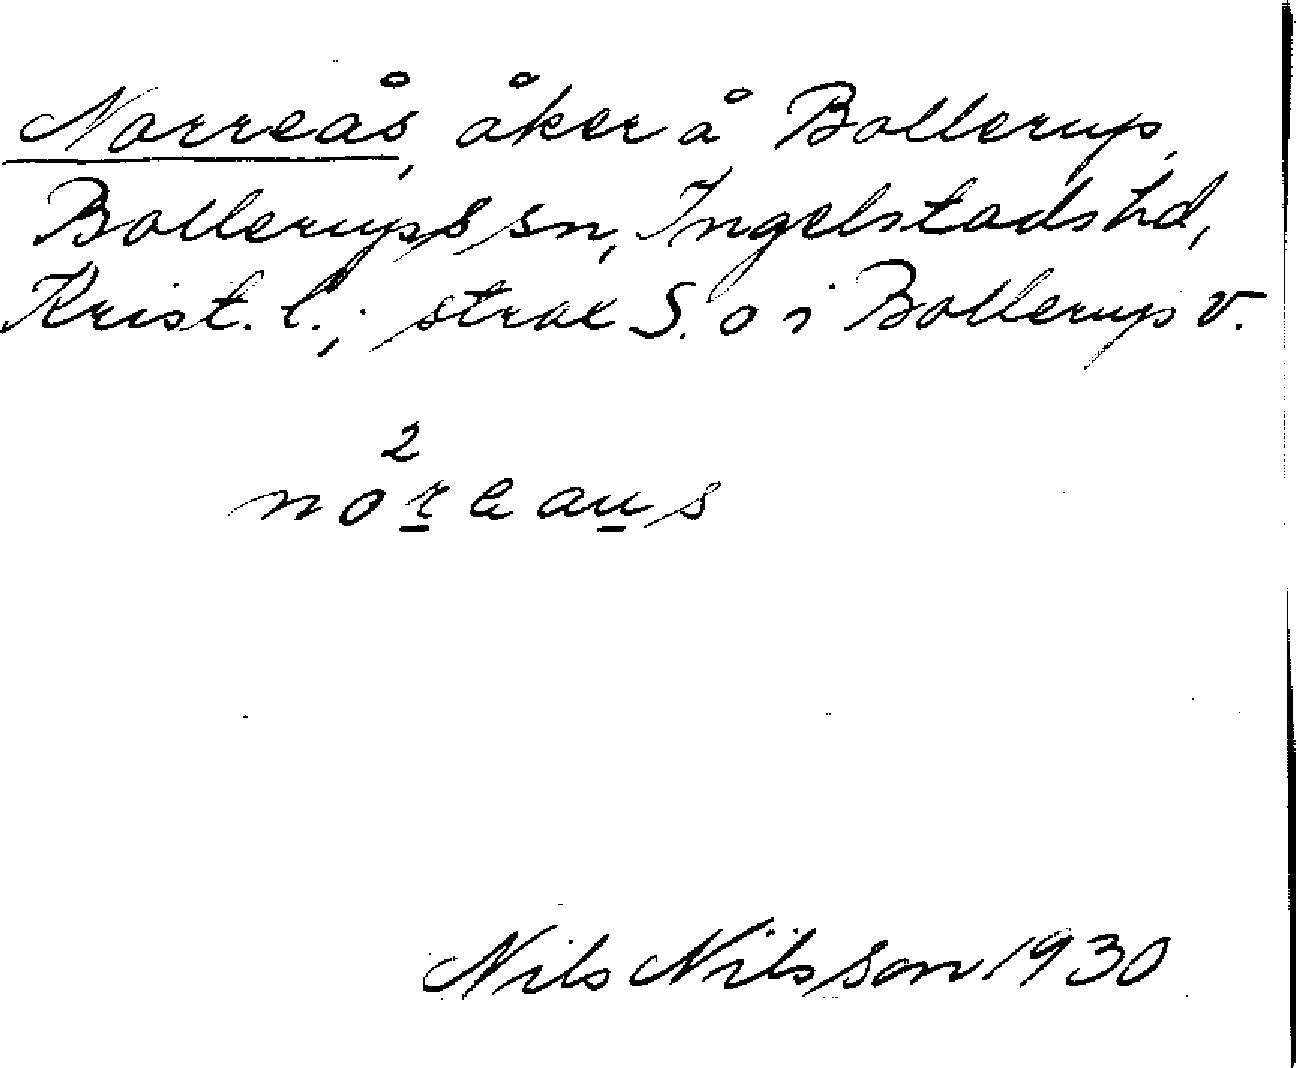 Norreås, åker å Bollerup,
Bollerups sn, Ingelstads hd,
Krist. l.; strax S. o i Bollerup v.
2
noreaus
Nils Nilsson 1930